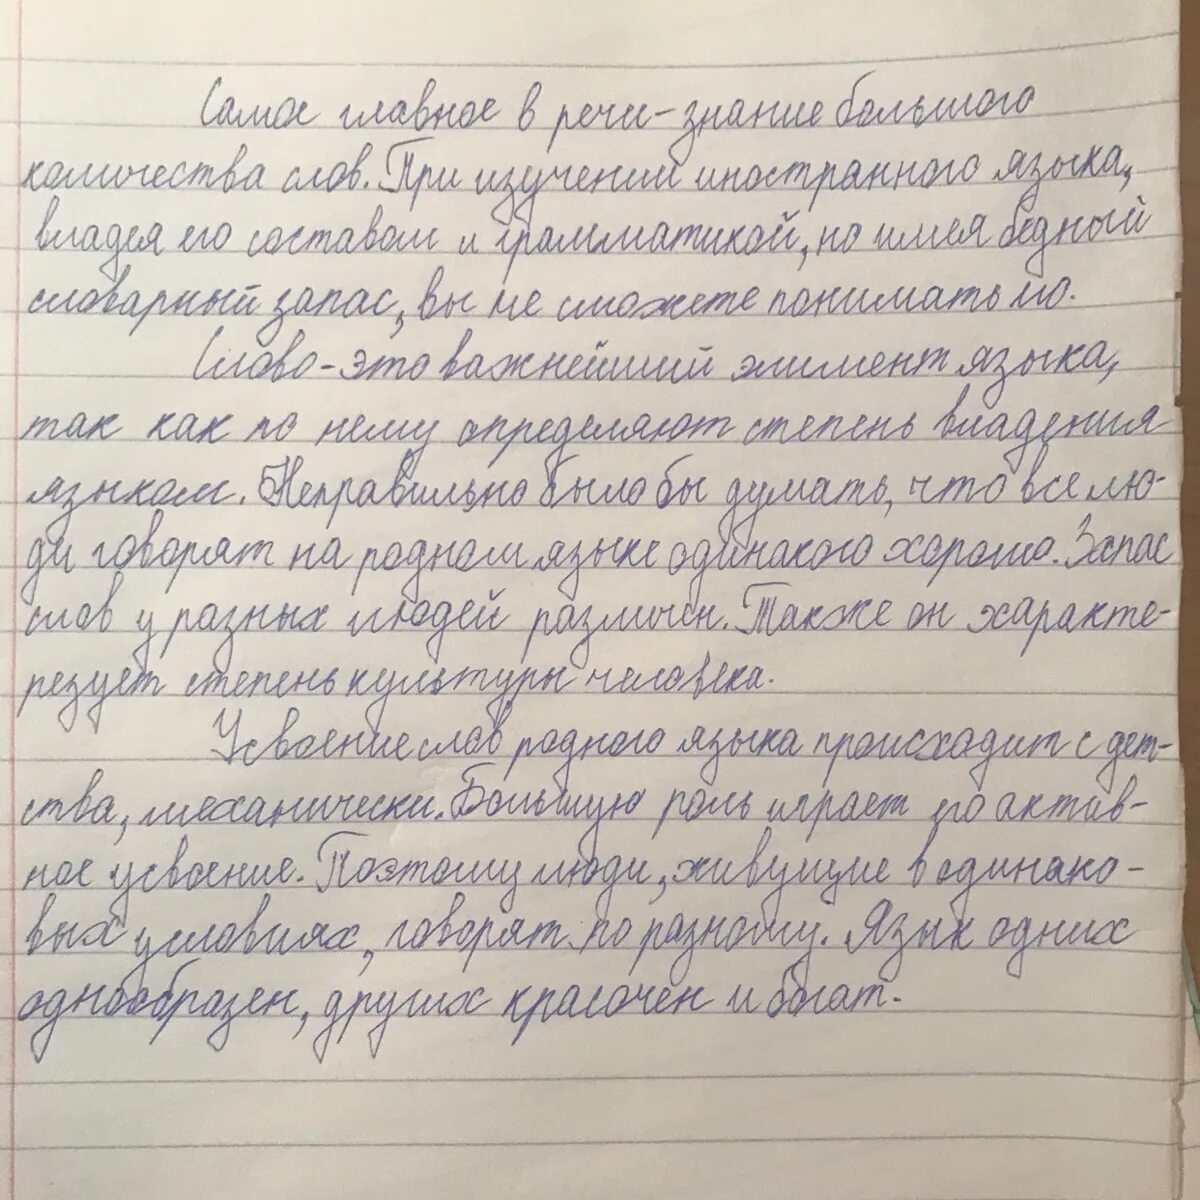 Самое главное в речи-знание большого
количества слов. При изучении иностранного языка,
владея его составом и грамматикой, но имея бедный
словарный запас, вы не сможете понимать его.
Слово-это важнейший элимент языка,
так как по нему определяют степень владения
языком. Неправильно было бы думать, что все лю-
ди говорят на родном языке одинаково хорошо. Запас
слов у разных людей различен. Также он характе-
резует степень культуры человека.
Усвоение слов родного языка происходит с дет-
ства, механически. Большую роль играет его актив-
ное усвоение. Поэтому люди, живущие в одинако-
вых условиях, говорят по разному. Язык одних
однообразен, других красочен и богат.